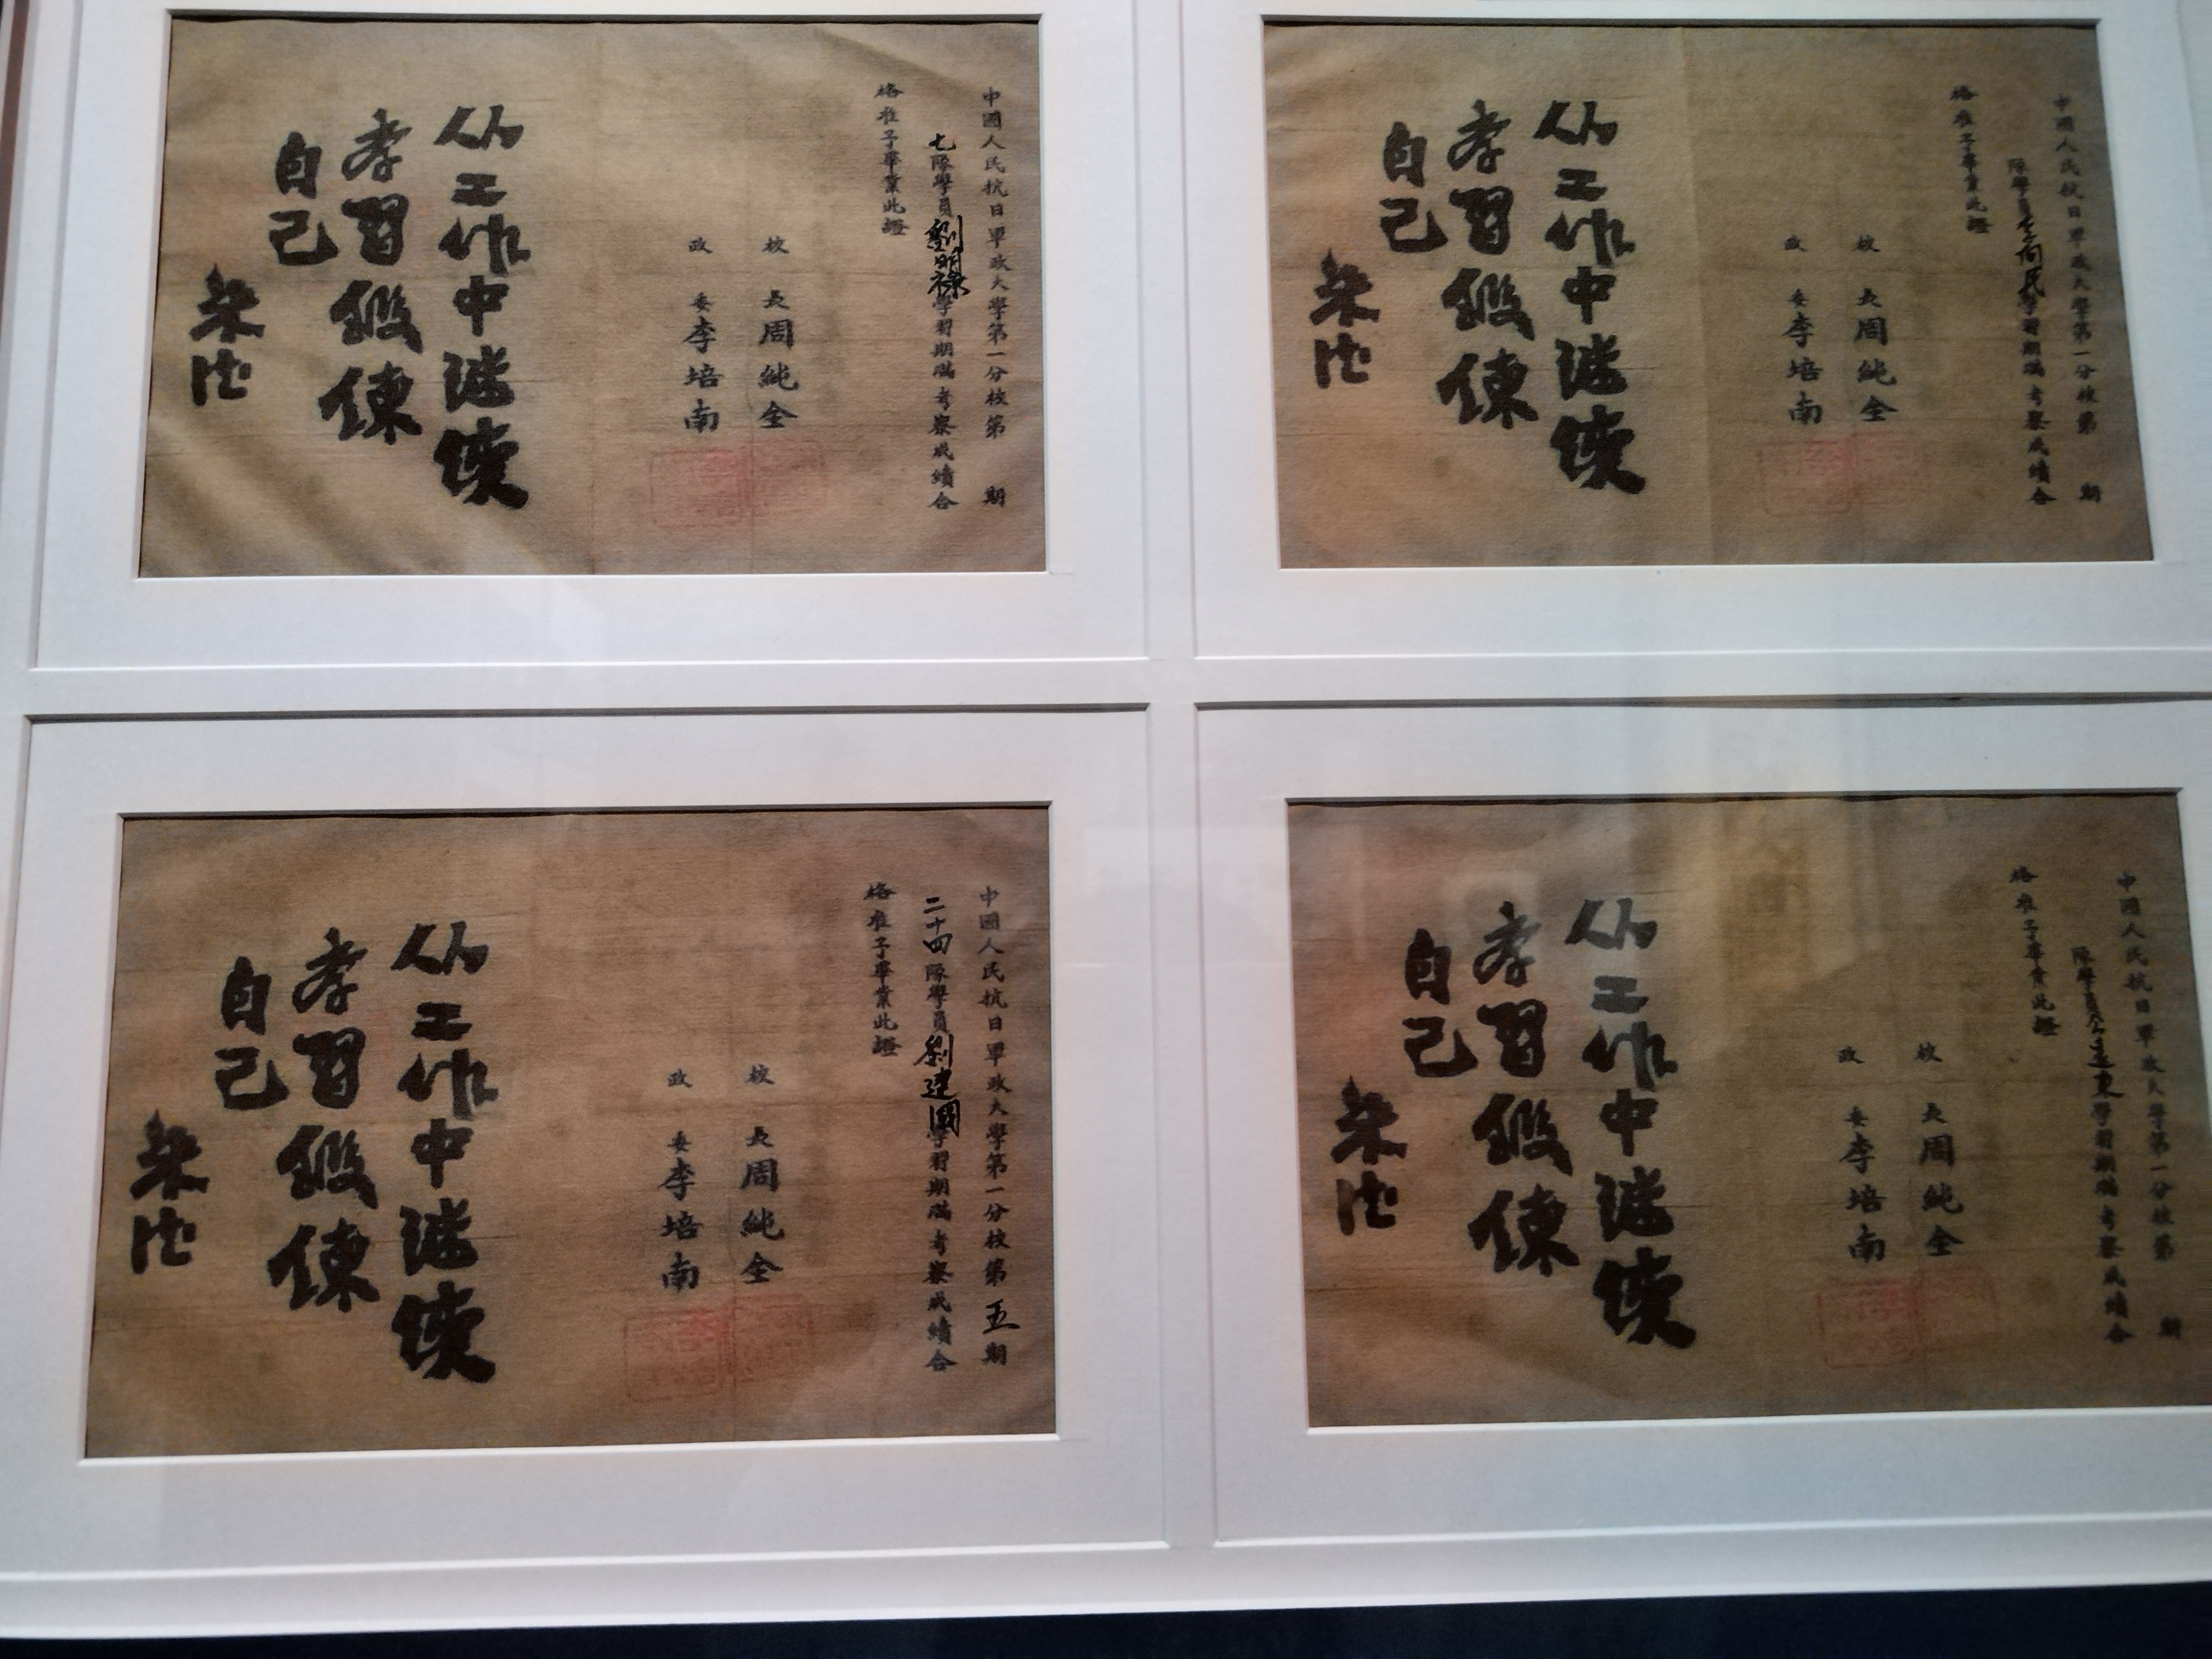 中國人民抗日軍政大學第一分校第 期
七隊學員劉明祿學習期滿考察成績合
格准予畢業此證
校長周純全
政委李培南
从工作中继续
孝習鍛鍊
自己
朱德
中國人民抗日軍政大學第一分校第 期
隊學員 向民學習期滿考察成績合
格准予畢業此證
校長周純全
政委李培南
从工作中继续
孝習鍛鍊
自己
朱德
中國人民抗日軍政大學第一分校第五期
二十四隊學員劉建國學習期滿考察成績合
格准予畢業此證
校長周純全
政委李培南
从工作中继续
孝習鍛鍊
自己
朱德
中國人民抗日軍政大學第一分校第 期
隊學員 東學習期滿考察成績合
格准予畢業此證
校長周純全
政委李培南
从工作中继续
孝習鍛鍊
自己
朱德